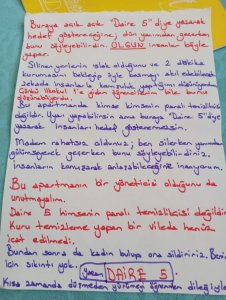 Buraya açık açık "Daire 5" diye yazarak
hedef göstereceğine; dön yanımdan geçerken
bunu söyleyebilirdin. OLGUN insanlar böyle
yapar.
Silinen yerlerin ıslak olduğunu ve 2 dakika
kurumasını bekleyip öyle basmayı akıl edebilecek
zekada insanlarla komşuluk yaptığımı düşünüyordum.
Çünkü ilkokul 1'e giden öğrencilerim bile bunu
düşünebiliyor.
Bu apartmanda kimse kimsenin paralı temizlikçisi
değildir. Uyarı yapabilirsin ama buraya "Daire 5" diye
yazarak insanları hedef gösteremezsin.
Madem rahatsız oldunuz; ben silerken yanımdan
gülümseyerek geçerken bunu söyleyebilirdiniz.
İnsanların konuşarak anlaşabileceğine inanıyorum.
Bu apartmanın bir yöneticisi olduğunu da
unutmayalım.
Daire 5 kimsenin paralı temizlikçisi değildir.
Kuru temizleme yapan bir vileda henüz
icat edilmedi.
Bundan sonra da kadın bulup ona sildiriniz. Benim
için sıkıntı yok.
Yazan DAİRE 5
Kısa zamanda düşmeden yürümeyi öğrenmen dileğiyle